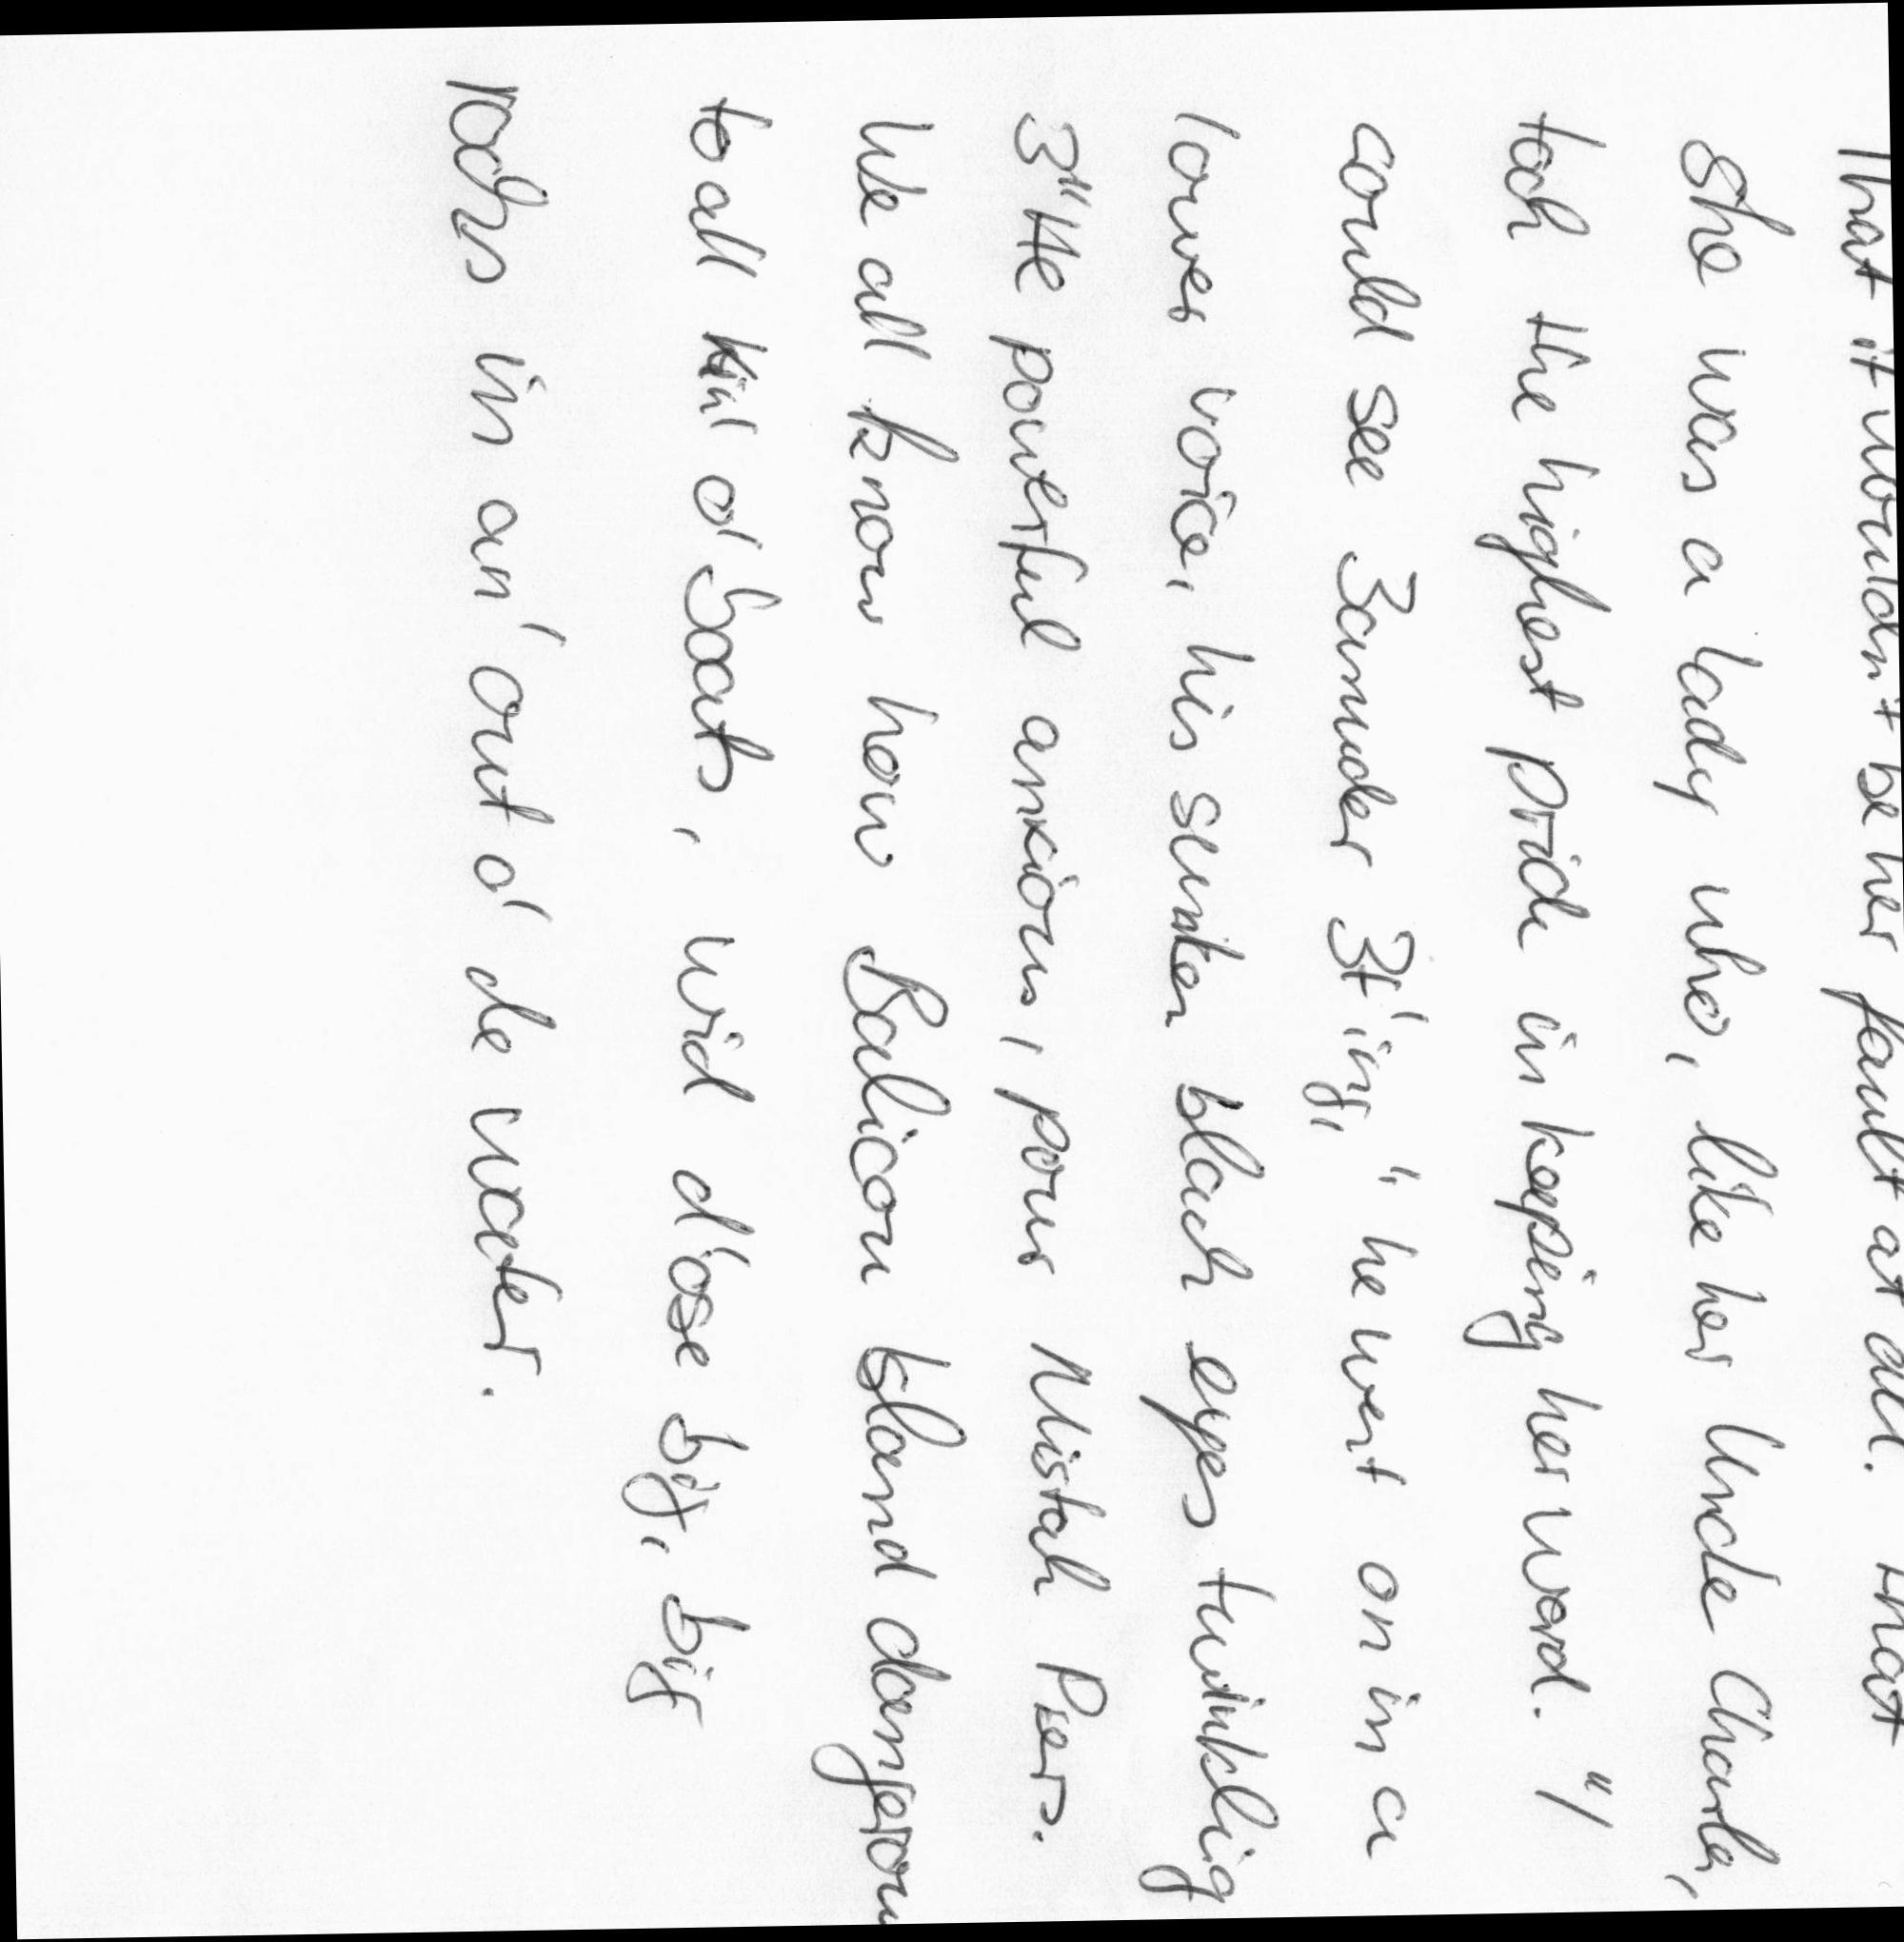 That it wouldn't be her fault at all. That
She was a lady who, like her Uncle Charles,
took the highest pride in keeping her word. "I
could see 3amuder 3t'ing," he went on in a
lower voice, his sunken black eyes twinklig
3"He powerful anxious, pour Mistah Piers.
We all know how Balicou Island dangerou
to all kin' o' boats, wid d'ose big, big
rocks in an' out o' de water.